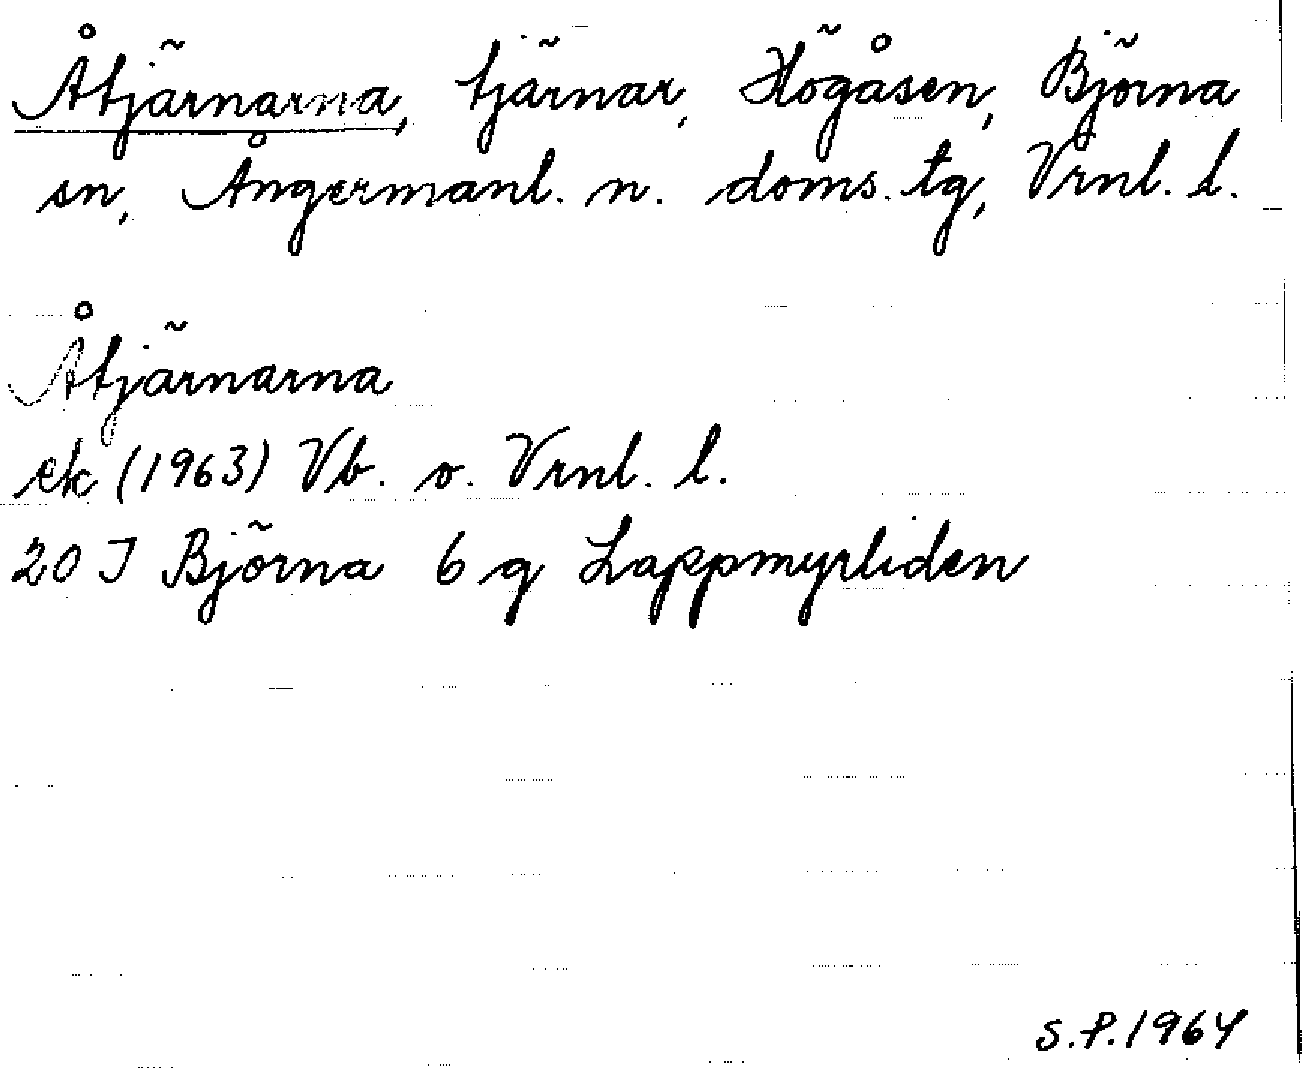 Åtjärnarna, tjärnar, Högåsen, Björna
sn, Ångermanl. n. doms. tg, Vrnl. l.
Åtjärnarna
ek (1963) Vb. o. Vrnl. l.
20 I Björna 6 g Lappmyrliden
S.P.1964